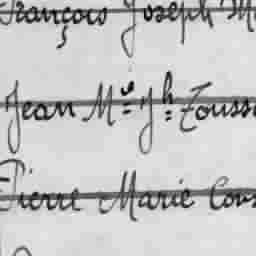 François Joseph M
Jean Mie Jh Touss
Pierre Marie Cons